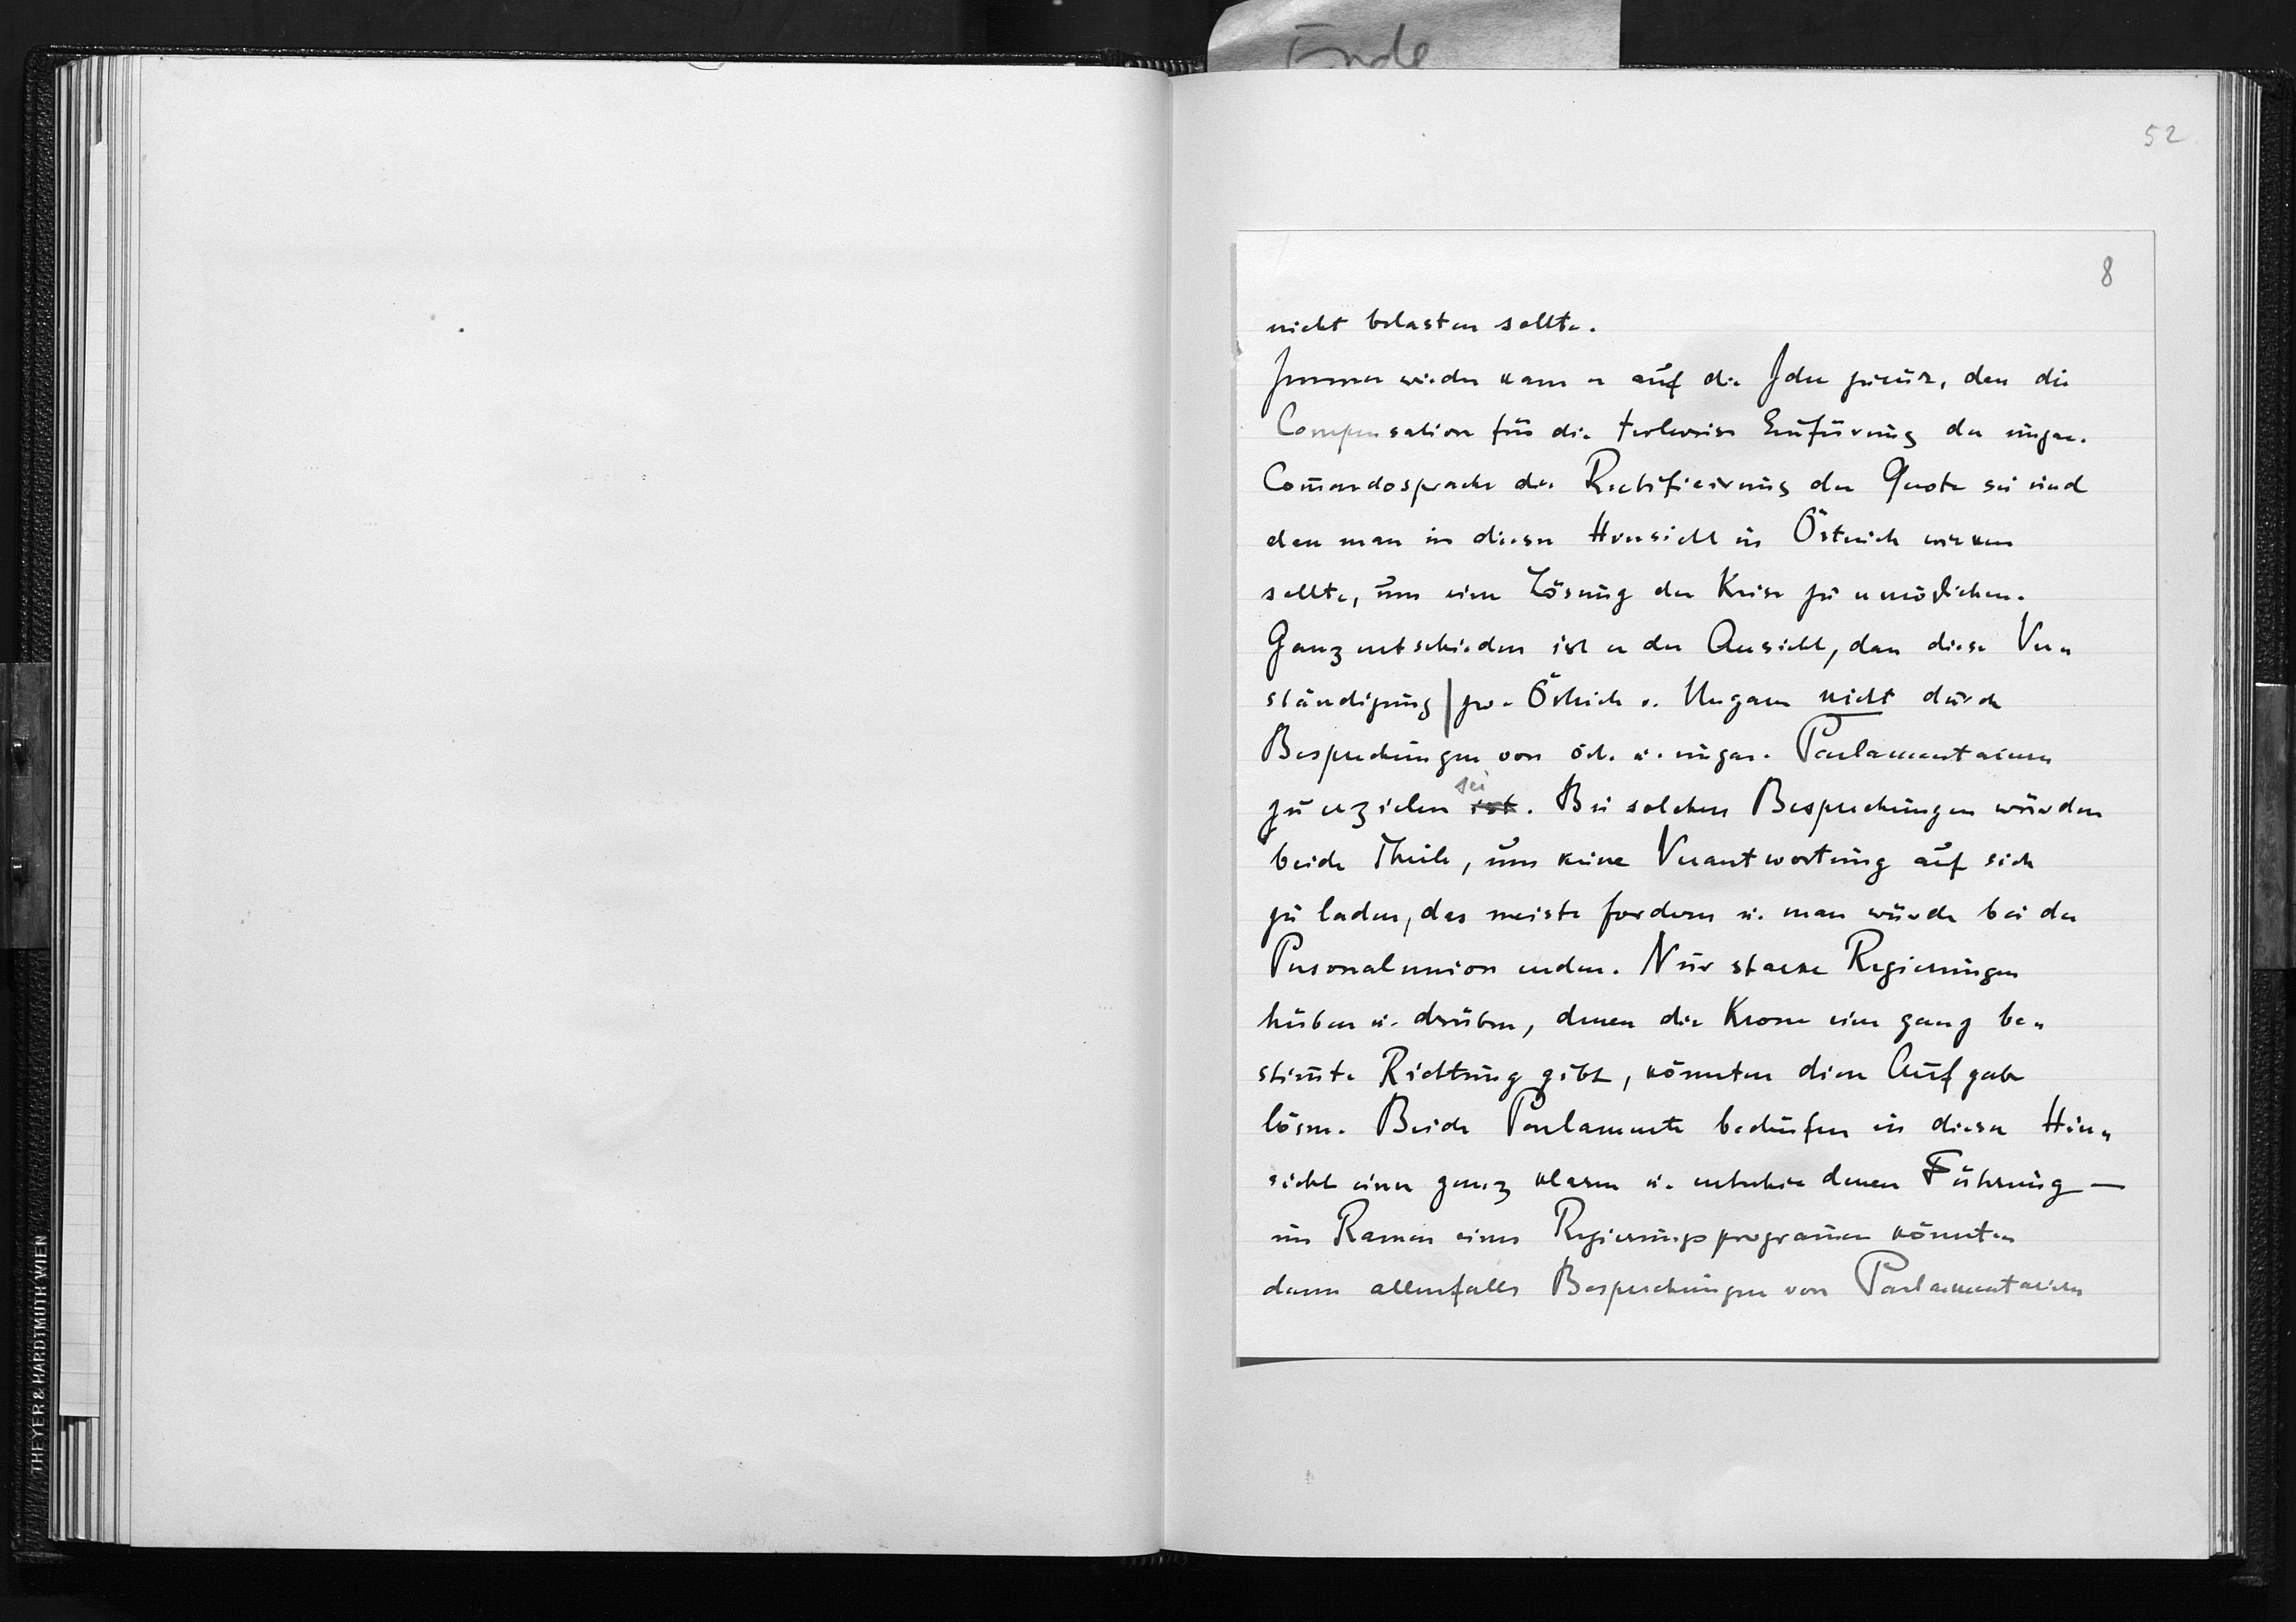 Ende
52
8
nicht belasten sollte.
Immer wieder kam er auf die Idee zurück, dass die
Compensation für die teilweise Einfürung der ungar.
Commandosprache die Rectificirung der Quote sei und
dass man in dieser Hinsicht in Östreich wirken
sollte, um eine Lösung der Krise zu ermöglichen.
Ganz entschieden ist er der Ansicht, dass diese Ver-
ständigung zw. Östreich u. Ungarn nicht durch
Besprechungen von öst. u. ungar. Parlamentariern
zu erzielen ist sei. Bei solchen Besprechungen würden
beide Theile, um keine Verantwortung auf sich
zu laden, das meiste fordern u. man würde bei der
Personalunion enden. Nur starke Regierungen
hüben u. drüben, denen die Krone eine ganz be-
stimmte Richtung gibt, könnten diese Aufgabe
lösen. Beide Parlamente bedürfen in dieser Hin-
sicht einer ganz klaren u. entschiedenen Führung —
im Ramen eines Regierungsprogrammes könnten
dann allenfalls Besprechungen von Parlamentariern
THEYER & HARDTMUTH WIEN